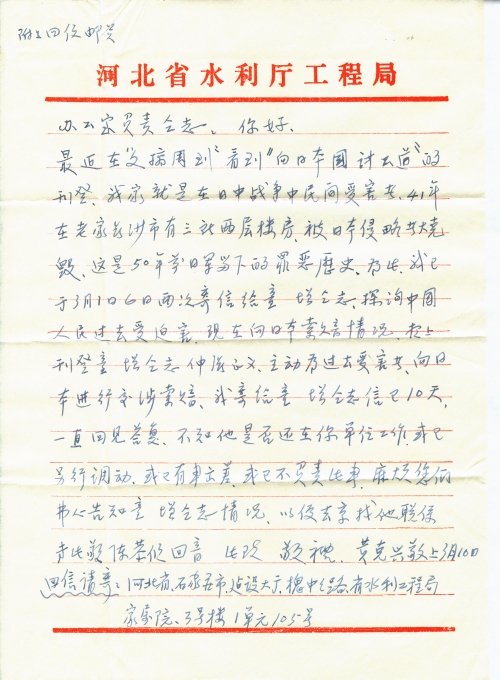 附上回信邮资
河北省水利厅工程局
办公室负责全志。你好。
最近在《文摘周刊》看到"向日本国讨公道"的
刊登、我家就是在日中战争中民间受害者、41年
在老家长沙市有三站两层楼房、被日本侵略者烧
毁、这是50年前日军留下的罪恶歴史、为此、我已
于3月1日6日两次寄信给童增仝志、探询中国
人民过去受迫害、现在向日本索赔情况、按上
刊登童增仝志伸张正义、主动为过去受害者、向日
本进行交涉索赔、我寄给童增仝志信已10天、
一直回见答复、不知他是否还在你单位工作、或已
另行调动、或已有事出差、或已不负责此事、麻烦您们
费心告知童增仝志情况、以便去亲找他联系
专此敬陈恭候回音 此致 敬礼 黄克兴敬上3月10日
回信请寄：河北省石家庄市、建设大街、槐中路、省水利工程局
家属院、3号楼1单元105号